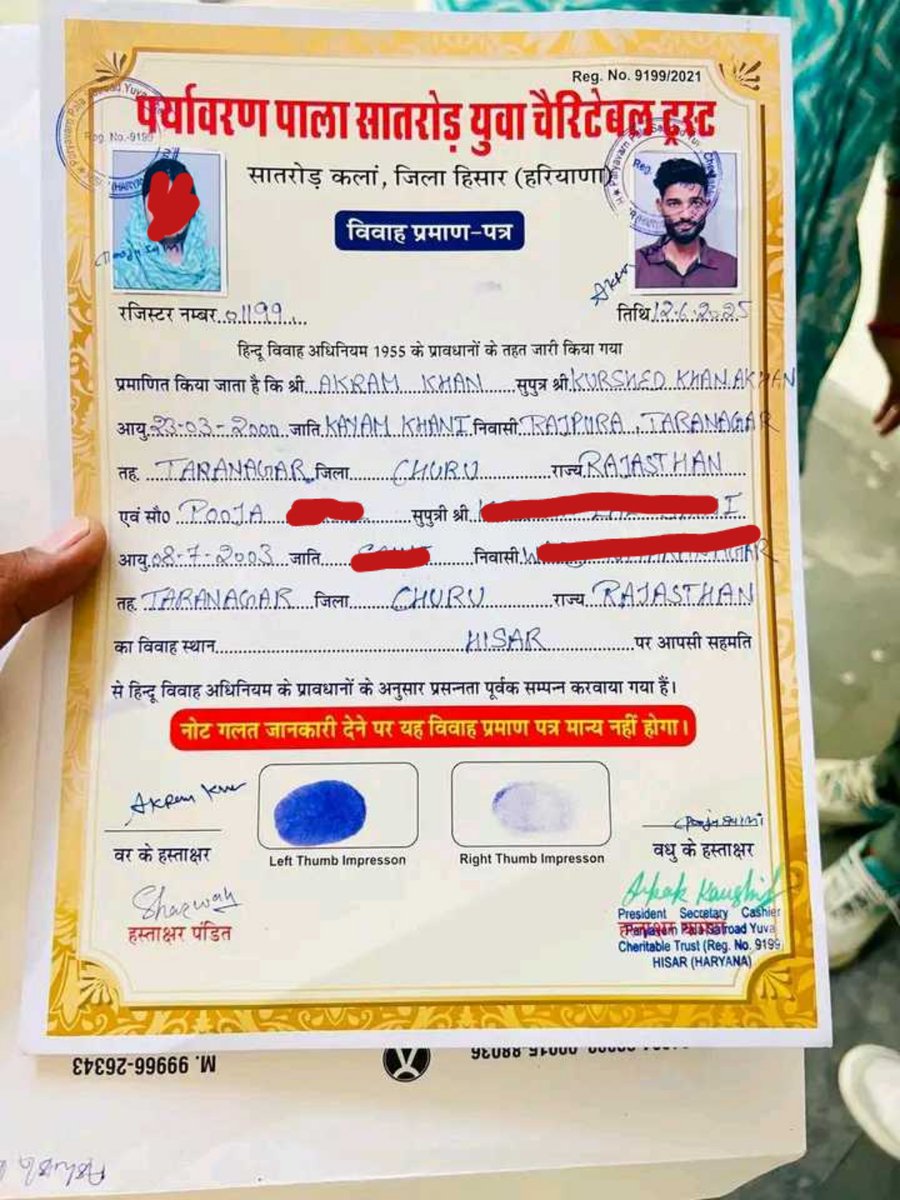 Reg. No. 9199/2021
पर्यावरण पाला सातरोड़ युवा चैरिटेबल ट्रस्ट
सातरोड़ कलां, जिला हिसार (हरियाणा)
विवाह प्रमाण-पत्र
रजिस्टर नम्बर 01199 तिथि 12.6.2025
हिन्दू विवाह अधिनियम 1955 के प्रावधानों के तहत जारी किया गया
प्रमाणित किया जाता है कि श्री AKRAM KHAN सुपुत्र श्री KURSHED KHAN
आयु 23-03-2000 जाति KAYAM KHANI निवासी RAJPURA, TARANAGAR
तह. TARANAGAR जिला CHURU राज्य RAJASTHAN
एवं सौ० POOJA सुपुत्री श्री
आयु 08-7-2003 जाति निवासी
तह. TARANAGAR जिला CHURU राज्य RAJASTHAN
का विवाह स्थान HISAR पर आपसी सहमति
से हिन्दू विवाह अधिनियम के प्रावधानों के अनुसार प्रसनता पूर्वक सम्पन करवाया गया हैं।
नोट गलत जानकारी देने पर यह विवाह प्रमाण पत्र मान्य नहीं होगा।
Left Thumb Impresson
Right Thumb Impresson
वर के हस्ताक्षर
वधु के हस्ताक्षर
Sharwan
हस्ताक्षर पंडित
President Secretary Cashier
Charitable Trust (Reg. No. 9199
HISAR (HARYANA)
M. 99966-26343